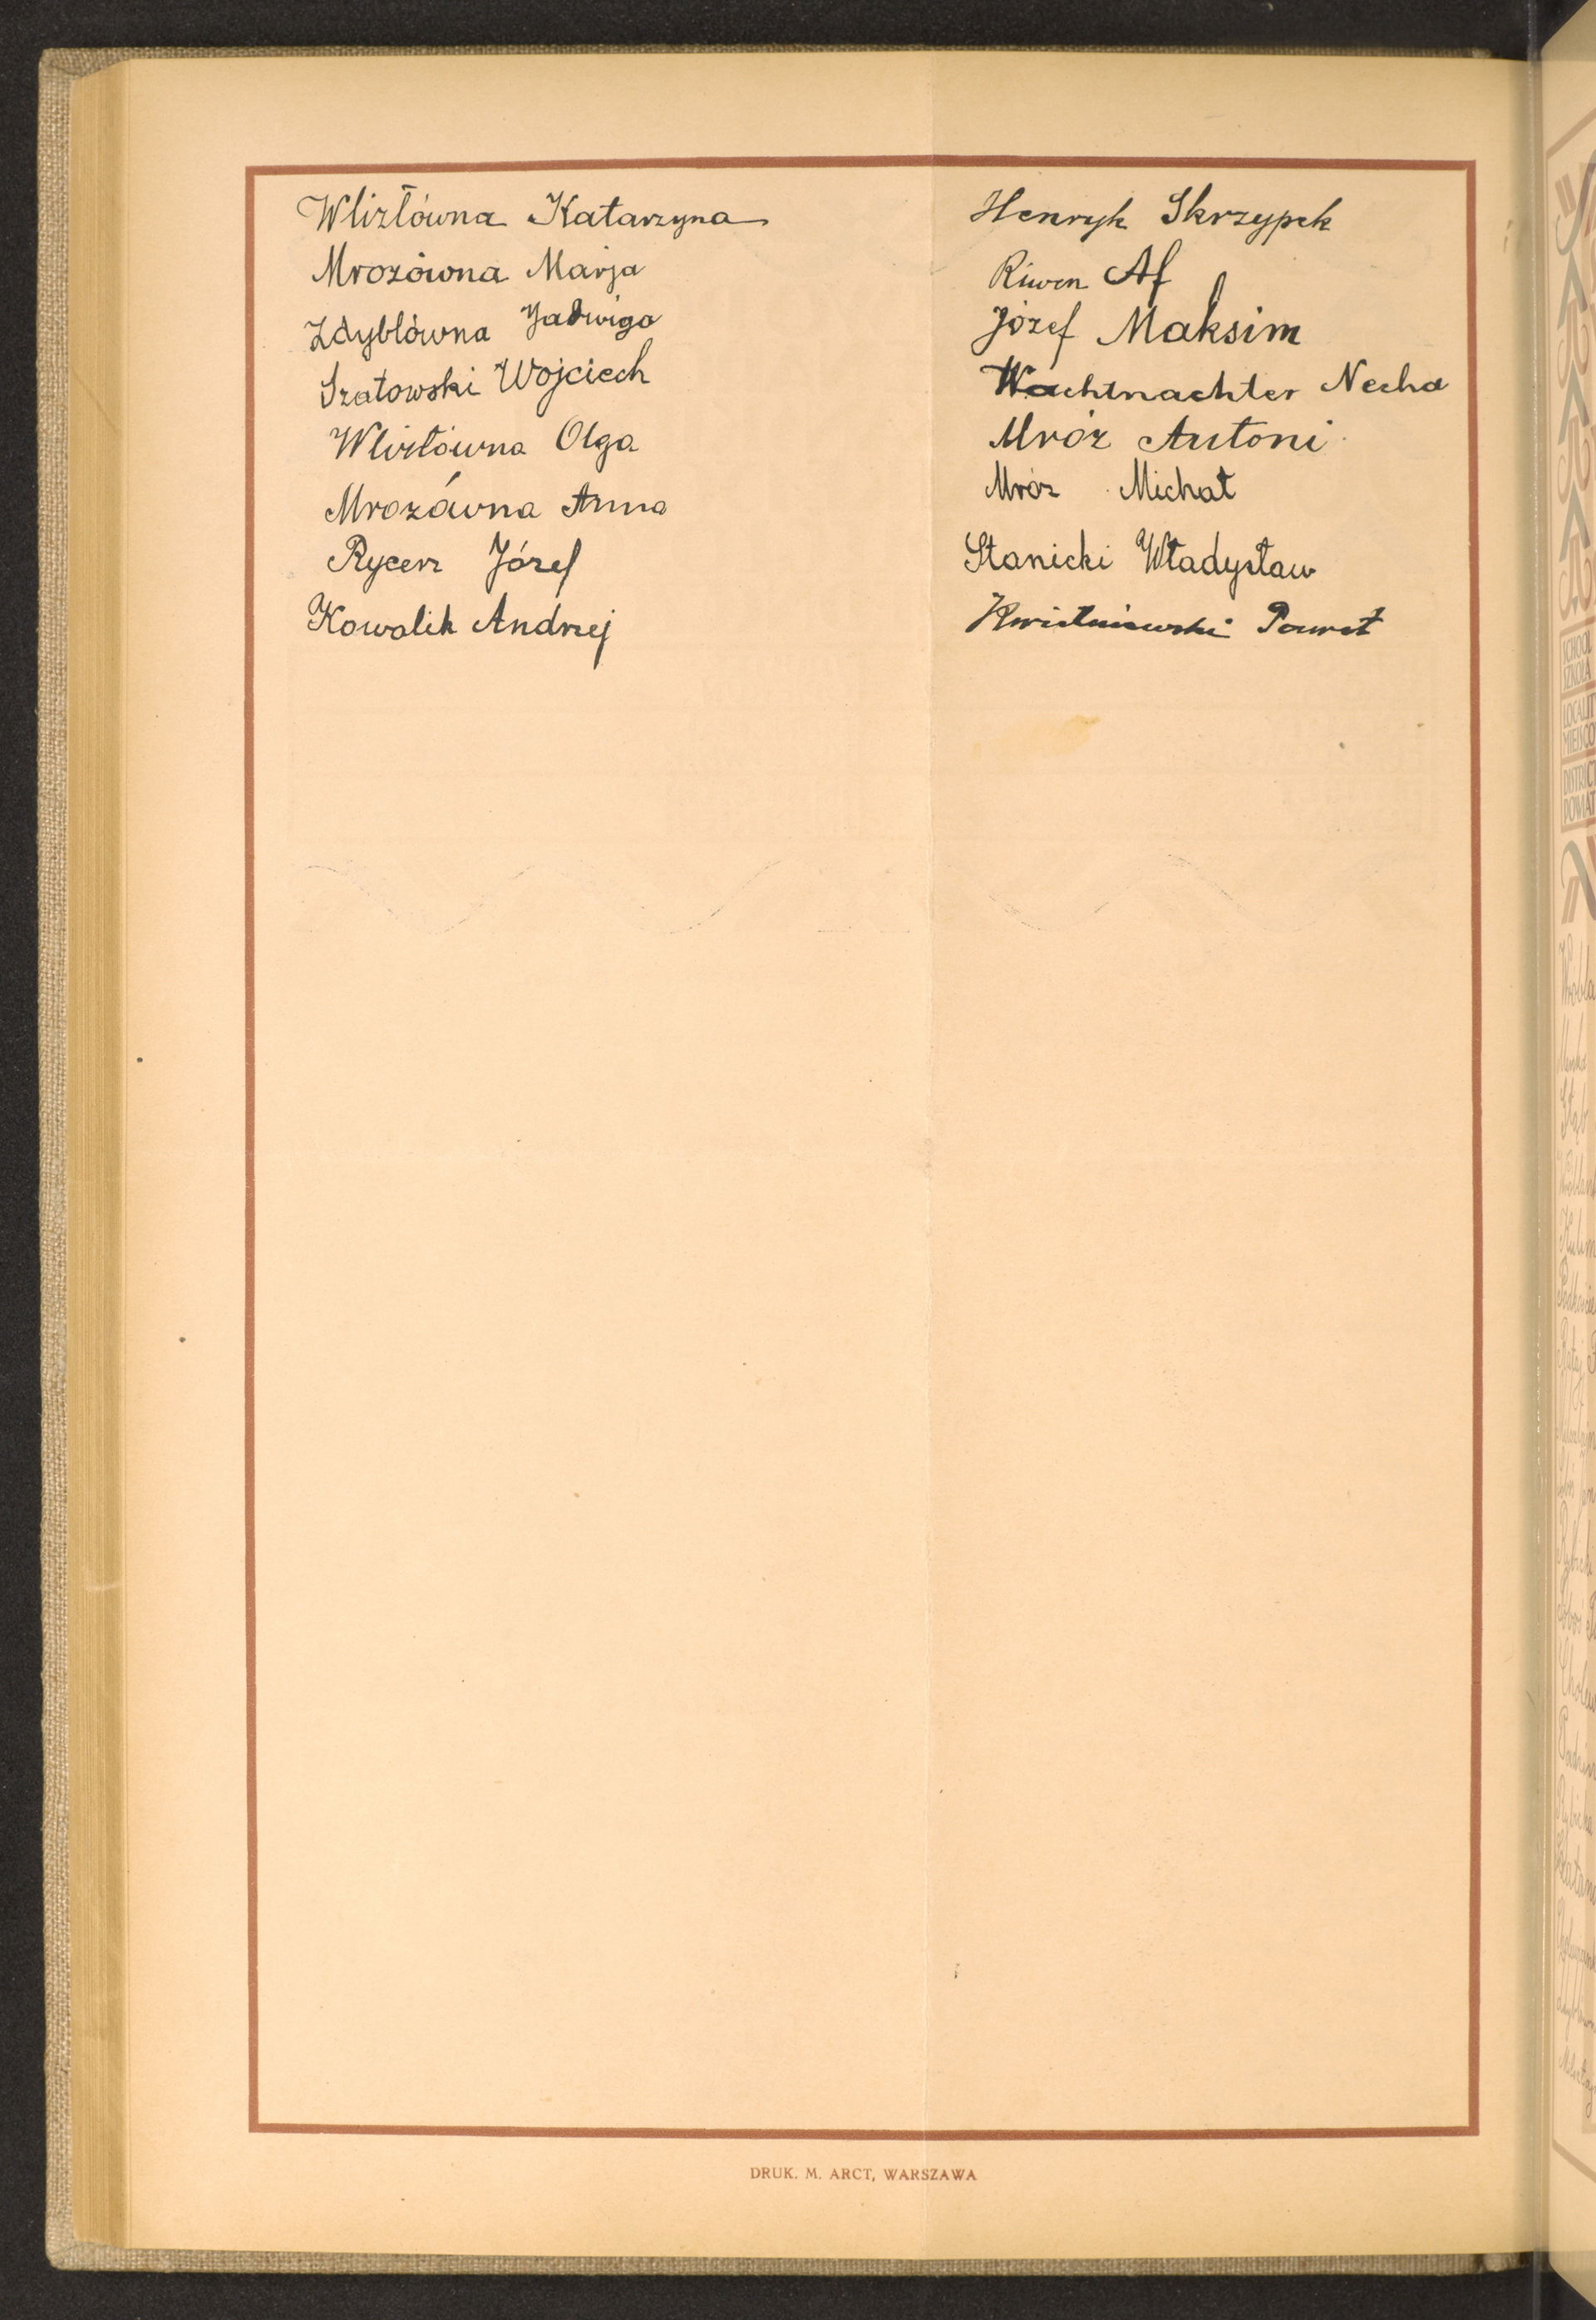 Wlizłówna Katarzyna
Mrozówna Marja
Zdyblówna Jadwiga
Szatowski Wojciech
Wlizłówna Olga
Mrozówna Anna
Rycerz Józef
Kowalik Andrzej
Henryk Skrzypek
Riwen Af
Józef Maksim
Wachtnachter Necha
Mróz Antoni
Mróz Michał
Stanicki Władysław
Kwiatniewski Paweł
DRUK. M. ARCT, WARSZAWA